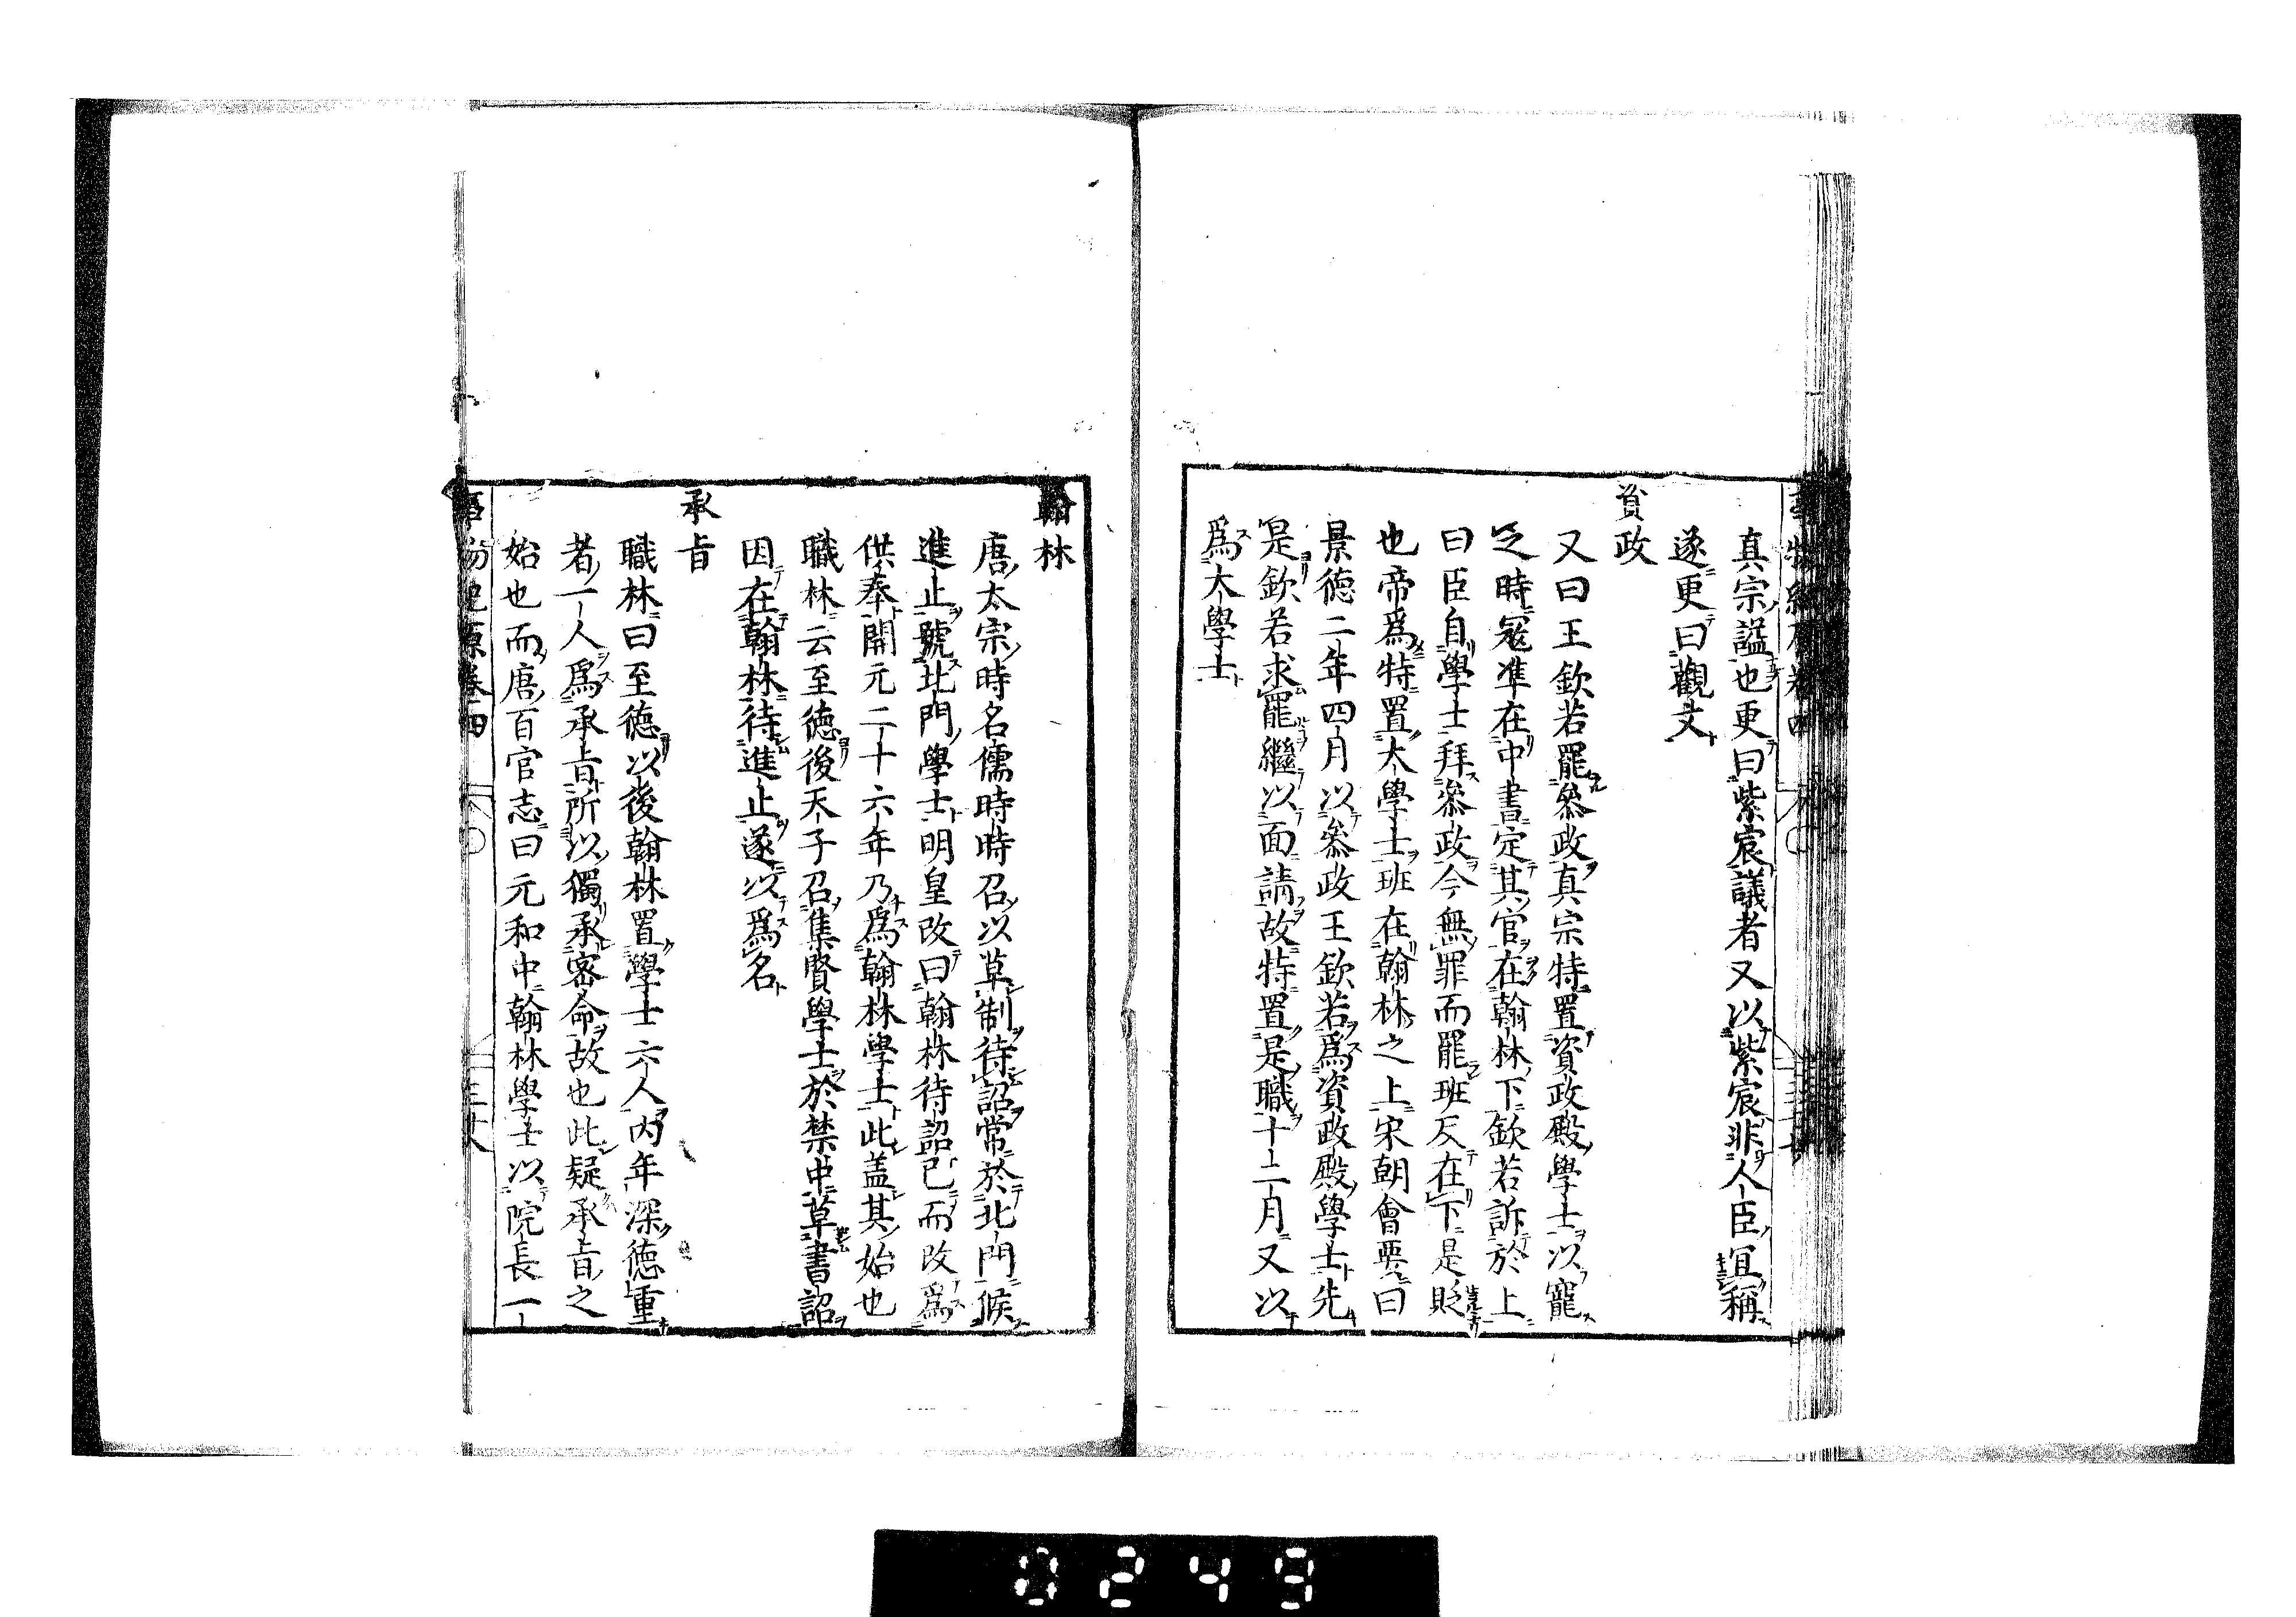 真宗謚也更曰紫宸議者又以紫宸非人臣宜稱
遂更曰觀文
資政
又曰王欽若罷叅政真宗特置資政殿學士以寵
之時冦準在中書定其官在翰林下欽若訴於上
曰臣自學士拜叅政今無罪而罷班反在下是貶
也帝爲特置大學士班在翰林之上宋朝會要曰
景德二年四月以叅政王欽若爲資政殿學士先
是欽若求罷繼以面請故特置是職十二月又以
爲大學士
翰林
唐太宗時名儒時時召以草制待詔常於北門候
進止號北門學士明皇改曰翰林待詔已而改爲
供奉開元二十六年乃爲翰林學士此盖其始也
職林云至德後天子召集賢學士於禁中草書詔
因在翰林待進止遂以爲名
承旨
職林曰至德以後翰林置學士六人内年深德重
者一人爲承旨所以獨承密命故也此疑承旨之
始也而唐百官志曰元和中翰林學士以院長一
事物紀原卷四
三十八
0249